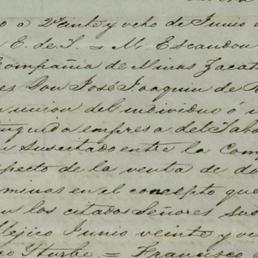 o a Veinte y ocho de Junio
E. de S. = M. Escandon
Compañia de Minas Zacat
es Don José Joaquin de
n union del individuo ó
nguida empresa del Taba
n suscitado entre la Com
specto de la venta de do
minas en el concepto que
n los citados Señores sus
Mejico Junio veinte y oc
co Yturbe = Francisco